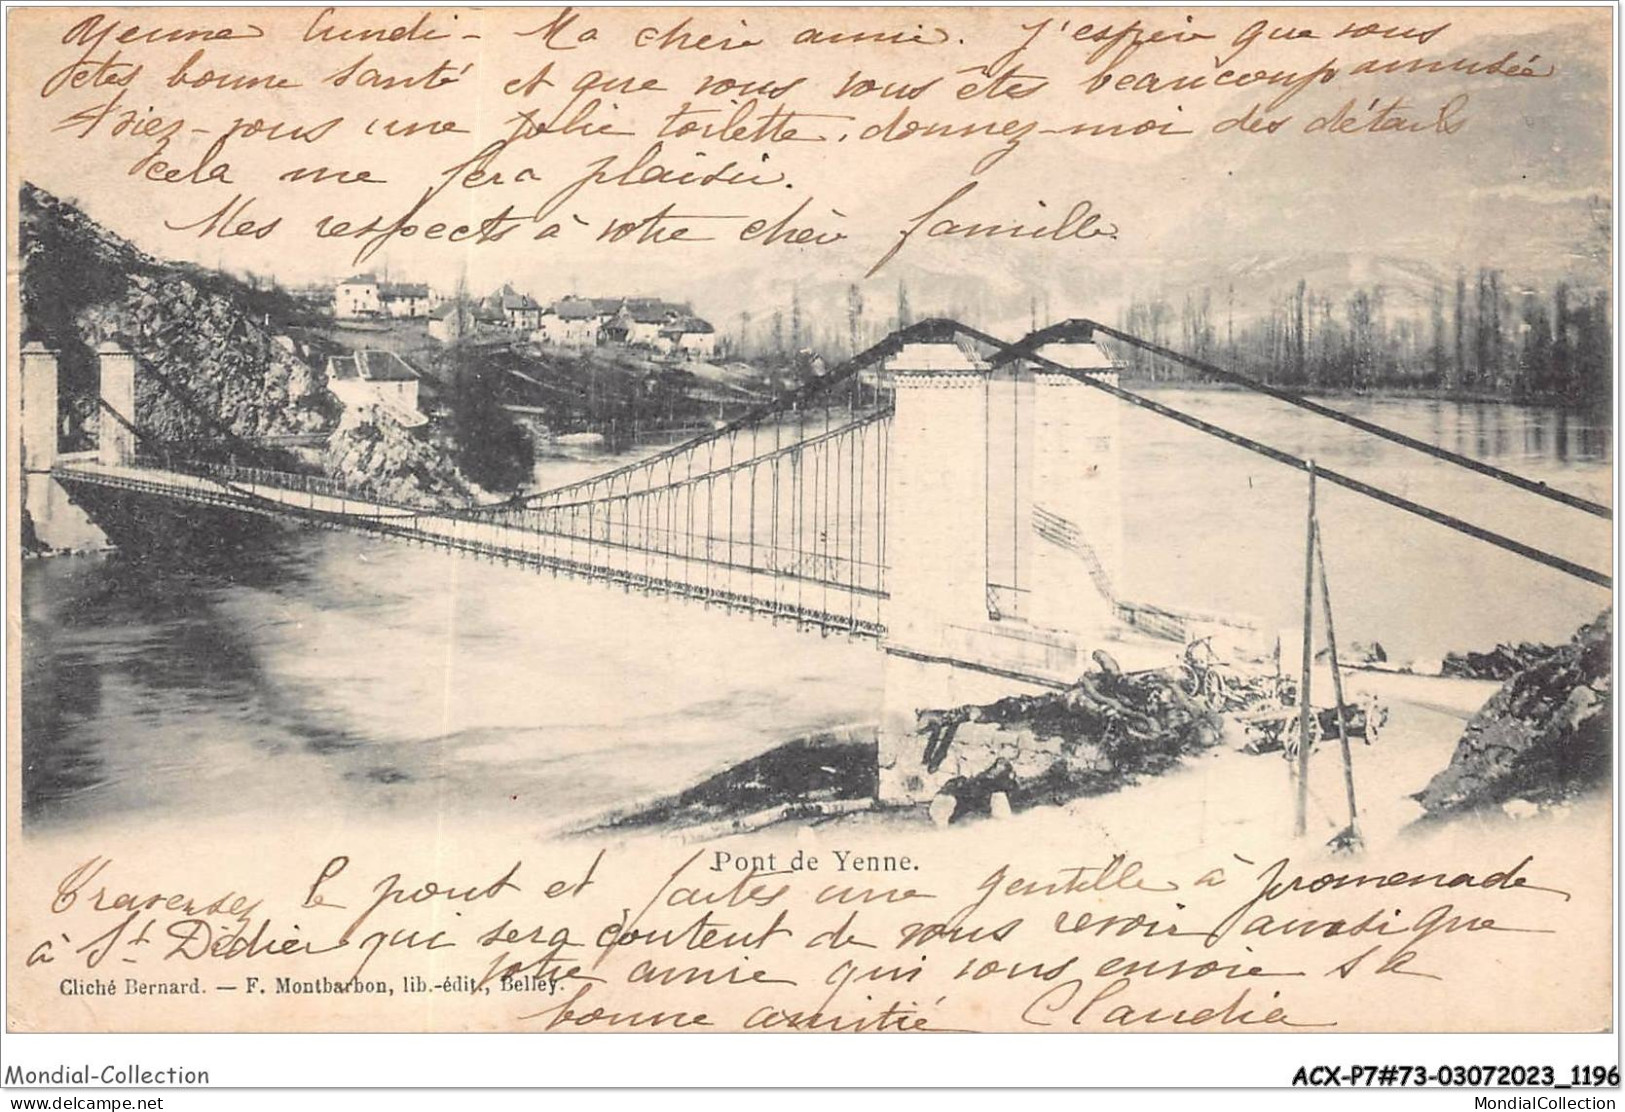 Yenne lundi - Ma chère amie. J'espère que vous
êtes bonne santé et que vous vous êtes beaucoup amusée
Aviez-vous une jolie toilette, donnez-moi des détails
cela me fera plaisir.
Mes respects à votre chère famille.
Pont de Yenne.
Traversez le pont et faites une gentille à promenade
à St Didier qui sera content de vous revoir ainsi que
votre amie qui vous envoie sa
Cliché Bernard. — F. Montbarbon, lib.-édit., Belley.
bonne amitié Claudia
Mondial-Collection
ACX-P7#73-03072023_1196
delcampe.net
MondialCollection